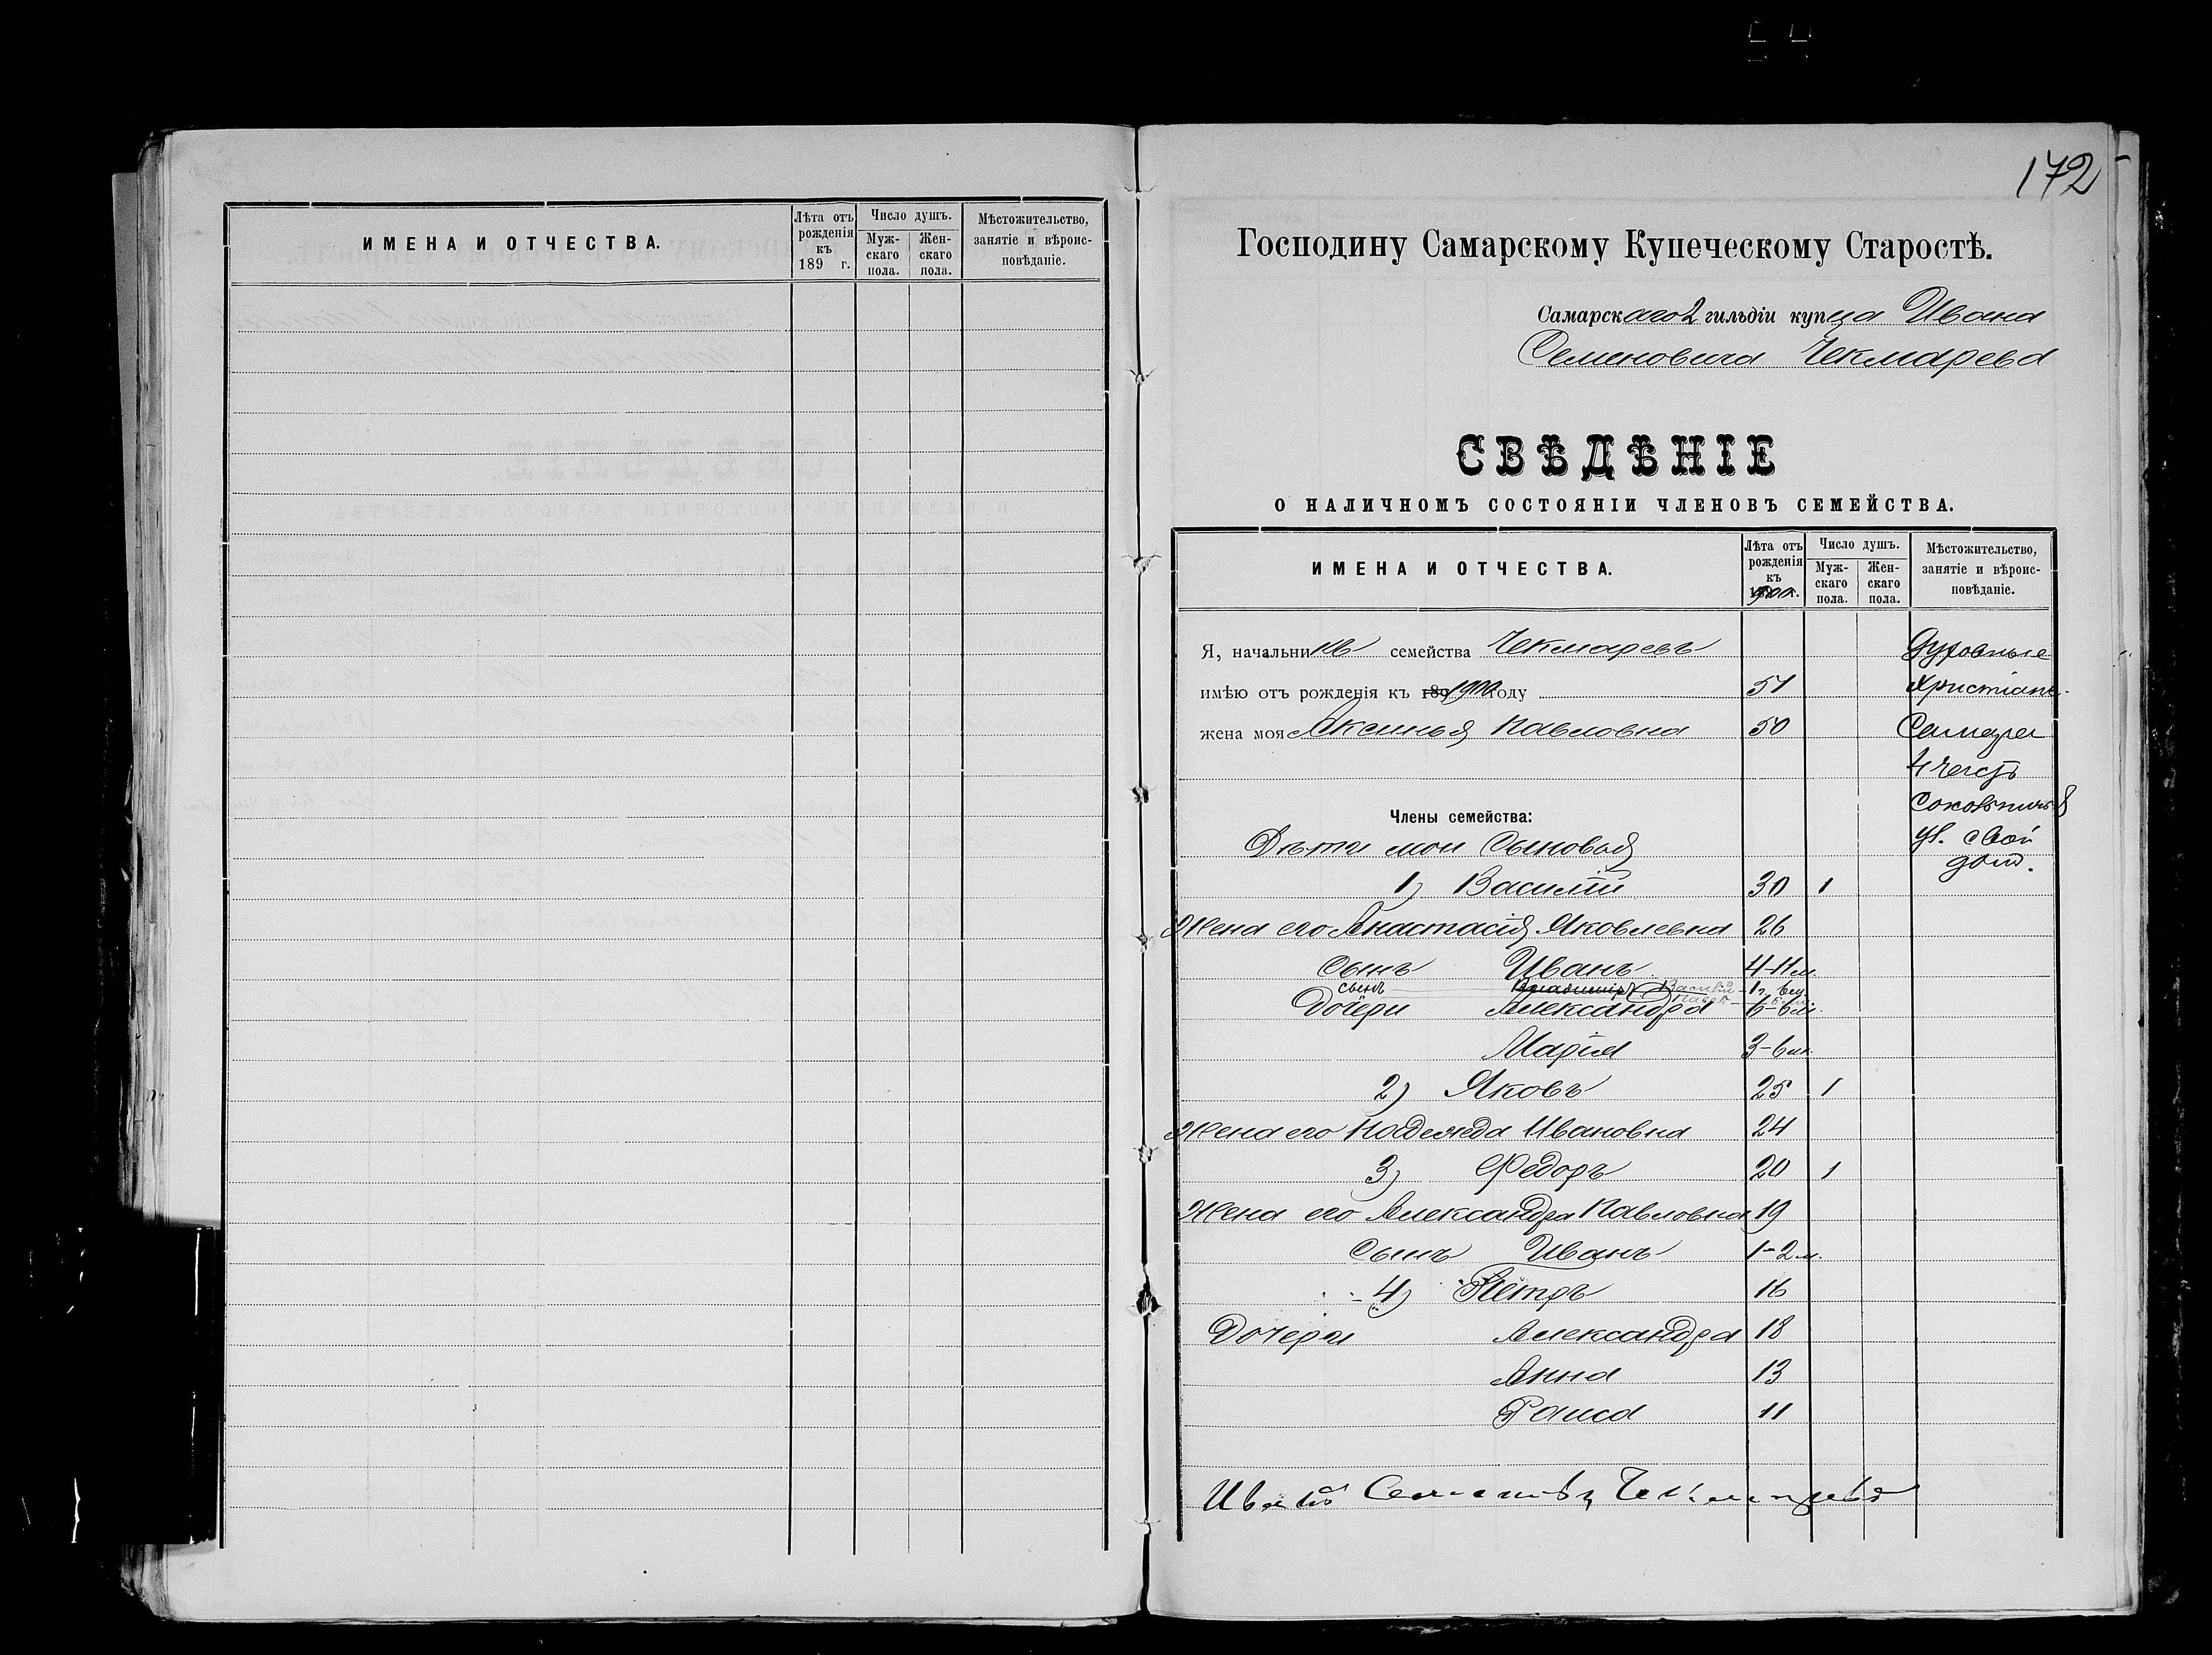 ИМЕНА И ОТЧЕСТВА.
Лѣта отъ рожденія къ 189 г.
Число душъ.
Мужскаго пола.
Женскаго пола.
Мѣстожительство, занятіе и вѣроисповѣданіе.
172
Господину Самарскому Купеческому Старостѣ.
Самарскаго 2 гильдіи купца Ивана
Семеновича Чекмарева
СВѢДѢНІЕ
О НАЛИЧНОМЪ СОСТОЯНІИ ЧЛЕНОВЪ СЕМЕЙСТВА.
ИМЕНА И ОТЧЕСТВА.
Лѣта отъ рожденія къ
Число душъ.
Мужскаго пола.
Женскаго пола.
Мѣстожительство, занятіе и вѣроисповѣданіе.
Я, начальникъ семейства Чекмаревъ Духовные
имѣю отъ рожденія къ 189 1900 году 51 Христіане.
жена моя Аксинья Павловна 50 Самара
4 часть
Члены семейства:
Дѣти мои Сыновья ул. свой
домъ.
1) Василій 30 1
Жена его Анастасія Яковлевна 26
Сынъ Иванъ 4-11 м.
сынъ Владиміръ Василій 1 г. 6 м.
Павел
Дочери Александра 6-6 м.
Марія 3-6 м.
2) Яковъ 25 1
Жена его Надежда Ивановна 24
3) Федоръ 20 1
Жена его Александра Павловна 19
Сынъ Иванъ 1-2 м.
4) Петръ 16
Дочери Александра 18
Анна 13
Раиса 11
Иванъ Чекмаревъ